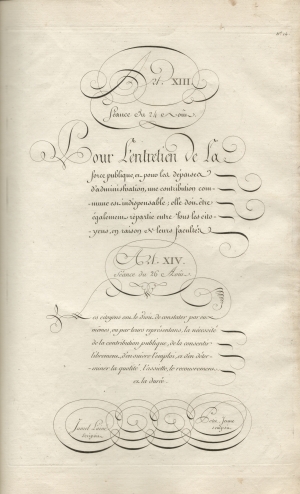 Art. XIII.
Séance du 24 Août.
Pour l'entretien de la
force publique, et pour les dépenses
d'administration, une contribution com-
mune est indispensable: elle doit être
également répartie entre tous les cito-
yens, en raison de leurs facultés.
Art. XIV.
Séance du 26 Août.
Les citoyens ont le droit, de constater par eux
mêmes, ou par leurs représentans, la nécessité
de la contribution publique, de la consentir
librement, d'en suivre l'emploi, et d'en déter-
miner la qualité, l'assiette, le recouvrement,
et la durée.